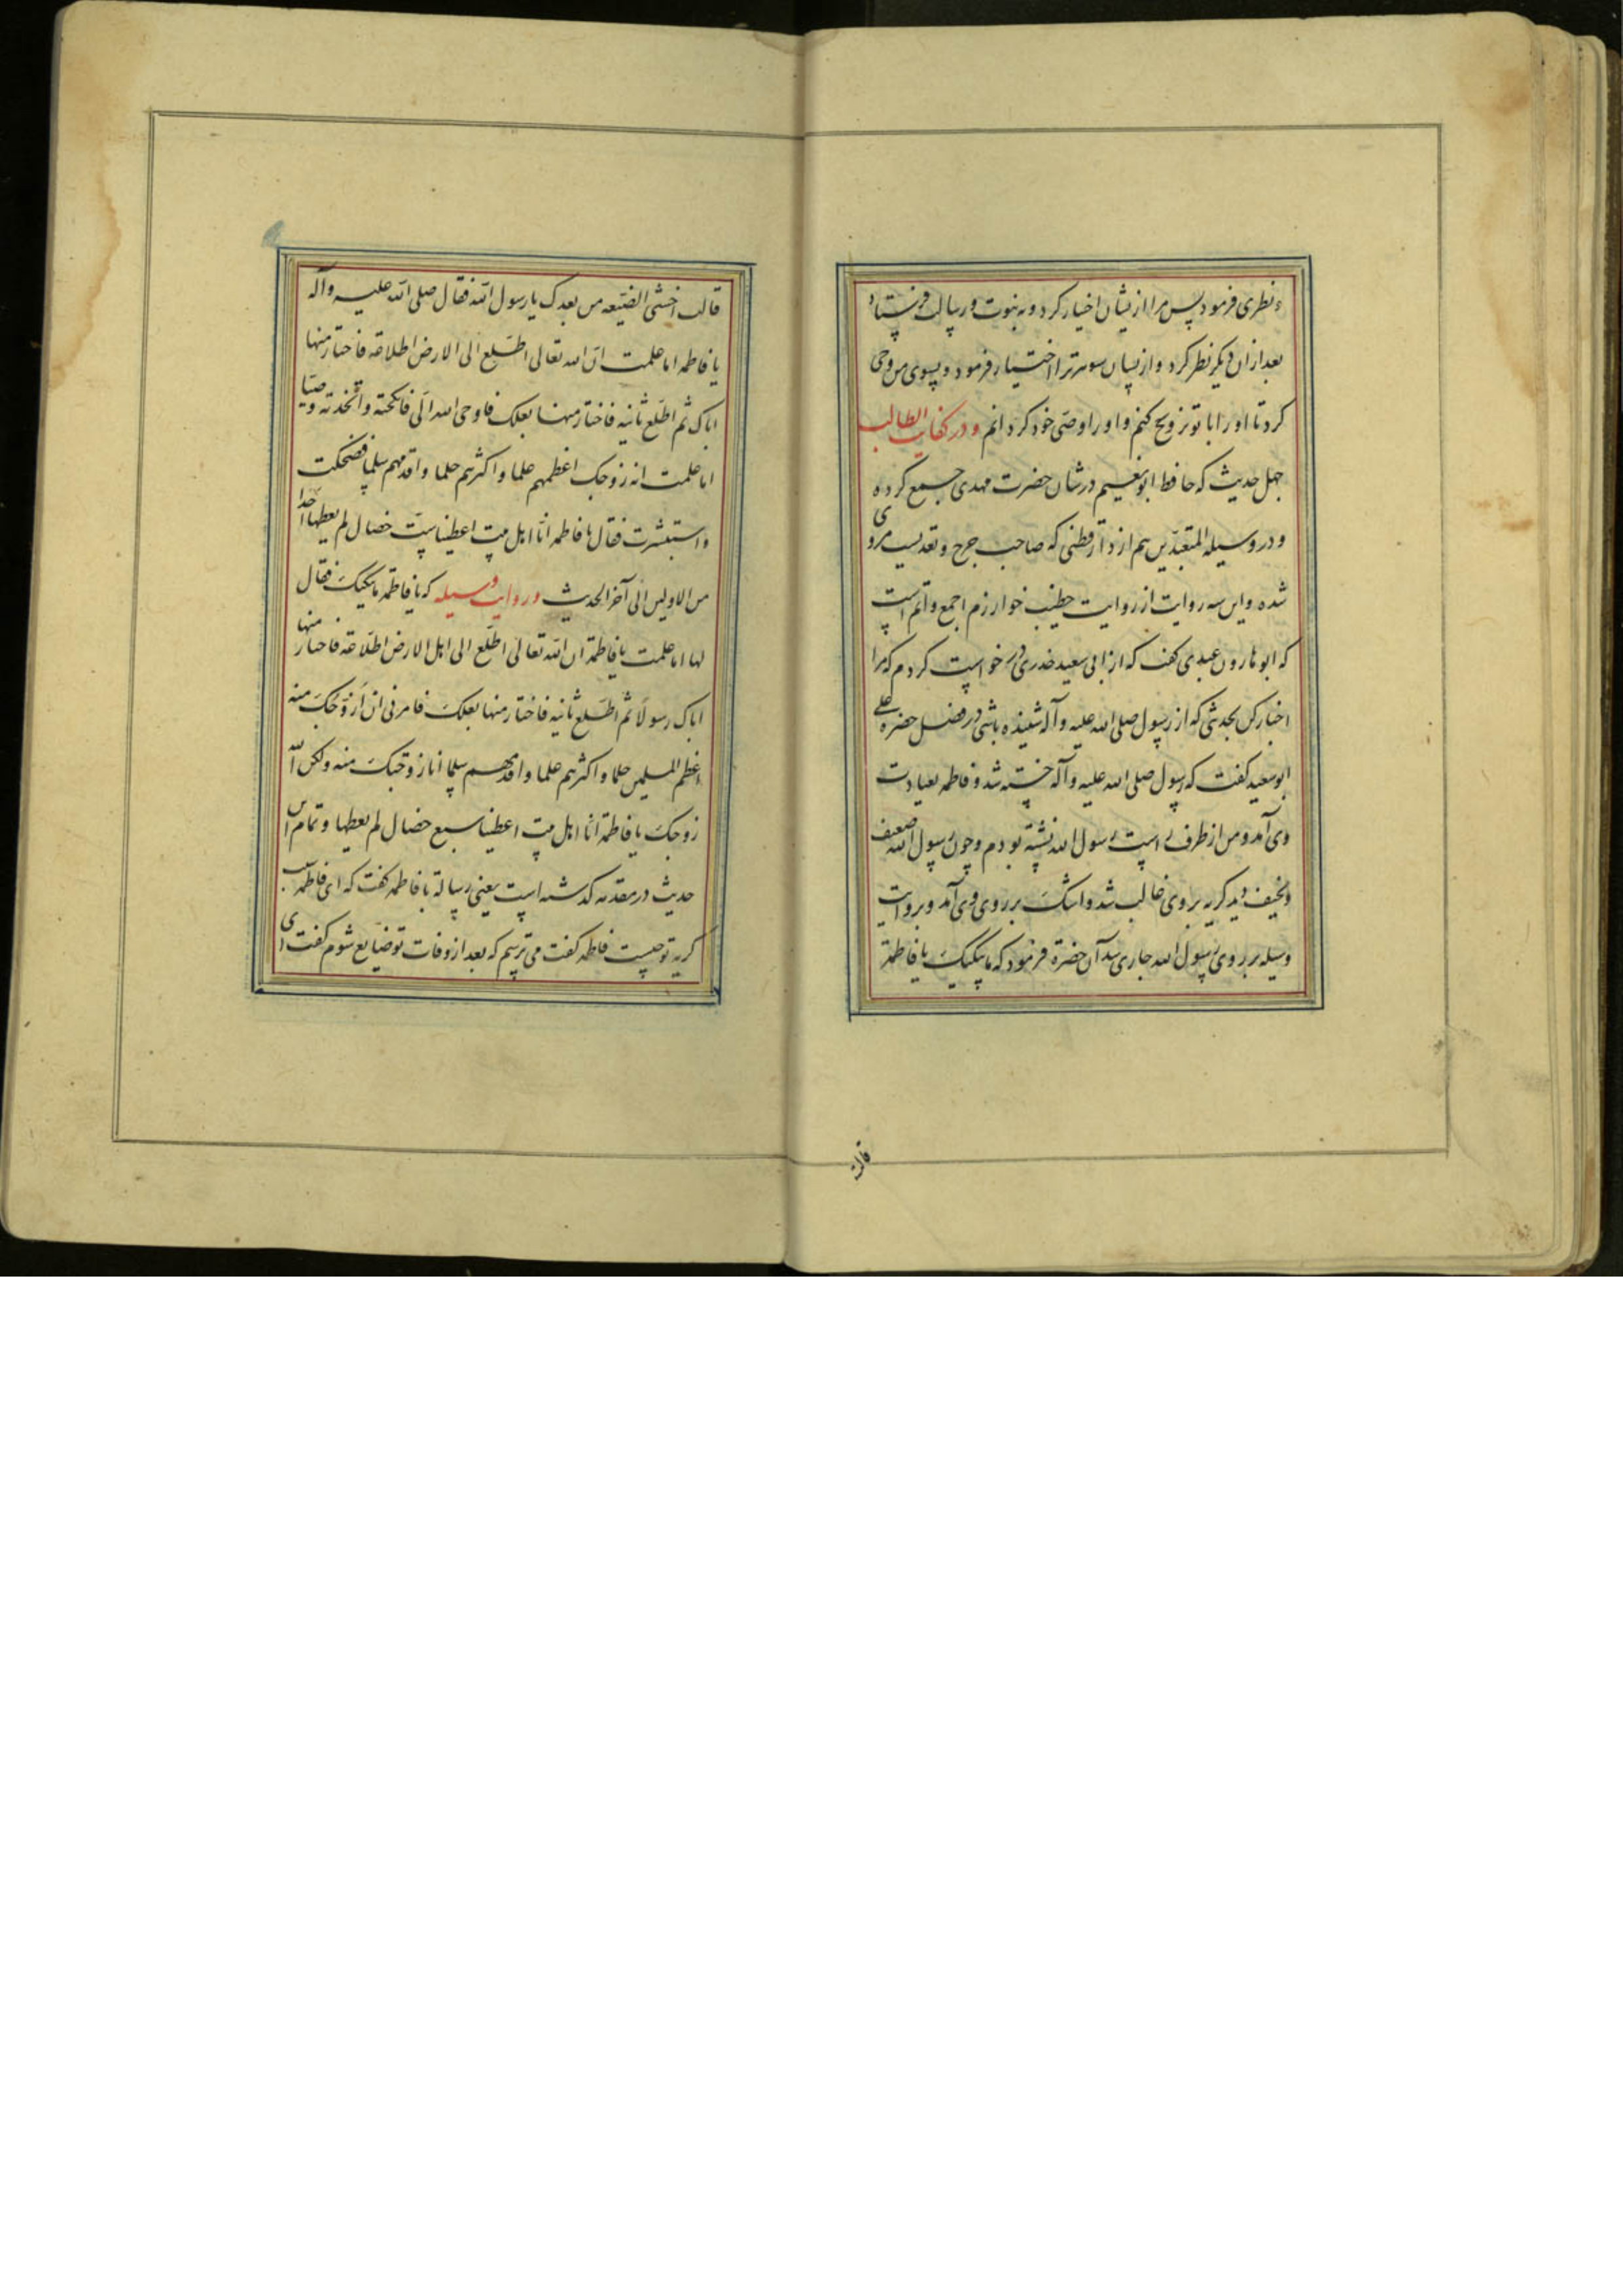 نظری فرمود پس مرا از یشان اختیار کرد و به نبوت و رسالت فرستاد
بعد ازان دیگر نظر کرد و از یشان شوهر ترا اختیار فرمود و بسوی من وحی
کرد تا او را با تو تزویج کنم و او را وصی خود کردانم و در کفایت الطالب
چهل حدیث که حافظ ابو نعیم در شان حضرت مهدی جمع کرده
و در وسیله المتعبدین هم از دارقطنی که صاحب جرح و تعدیلست مروی
شده و این سه روایت از روایت خطیب خوارزم اجمع و اتم است
که ابو هارون عبدی کفت که از ابی سعید خدری درخواست کردم که مرا
اخبار کن بحدیثی که از رسول صلی الله علیه و آله شنیده باشی در فضل حضرة علی
ابو سعید کفت که رسول صلی الله علیه و آله خسته شد و فاطمه بعیادت
وی آمد و من از طرف راست رسول الله نشسته بودم و چون رسول الله را ضعیف
و نحیف دید کریه بر وی غالب شد و اشک بر روی وی آمد و بروایت
وسیله بر روی رسول الله جاری شد آن حضرة فرمود که ما یبکیک یا فاطمة
قالت
قالت اخشی الضیعه من بعدک یا رسول الله فقال صلی الله علیه و آله
یا فاطمه اما علمت ان الله تعالی اطلع الی الارض اطلاعة فاختار منها
اباک ثم اطلع ثانیه فاختار منها بعلک فاوحی الله الی فانکحته و اتخذته وصیا
اما علمت انه زوجک اعظمهم علما و اکثرهم حلما و اقدمهم سلما فضحکت
و استبشرت فقال یا فاطمه انا اهل بیت اعطینا ست خصال لم یعطها احدا
من الاولین الی آخر الحدیث و در روایت وسیله که یا فاطمة ما یبکیک فقال
لها اما علمت یا فاطمة ان الله تعالی اطلع الی اهل الارض اطلاعة فاختار منها
اباک رسولا ثم اطلع ثانیه فاختار منها بعلک فامرنی ان ازوجک منه
اعظم المسلمین حلما و اکثرهم علما و اقدمهم سلما انا زوجتک منه و لکن الله
زوجک یا فاطمة انا اهل بیت اعطینا سبع خصال لم یعطها و تمام این
حدیث در مقدمه کذشته است یعنی رسالة با فاطمه کفت که ای فاطمه سبب
کریه تو چیست فاطمه کفت می ترسم که بعد از وفات تو ضایع شوم کفت ای